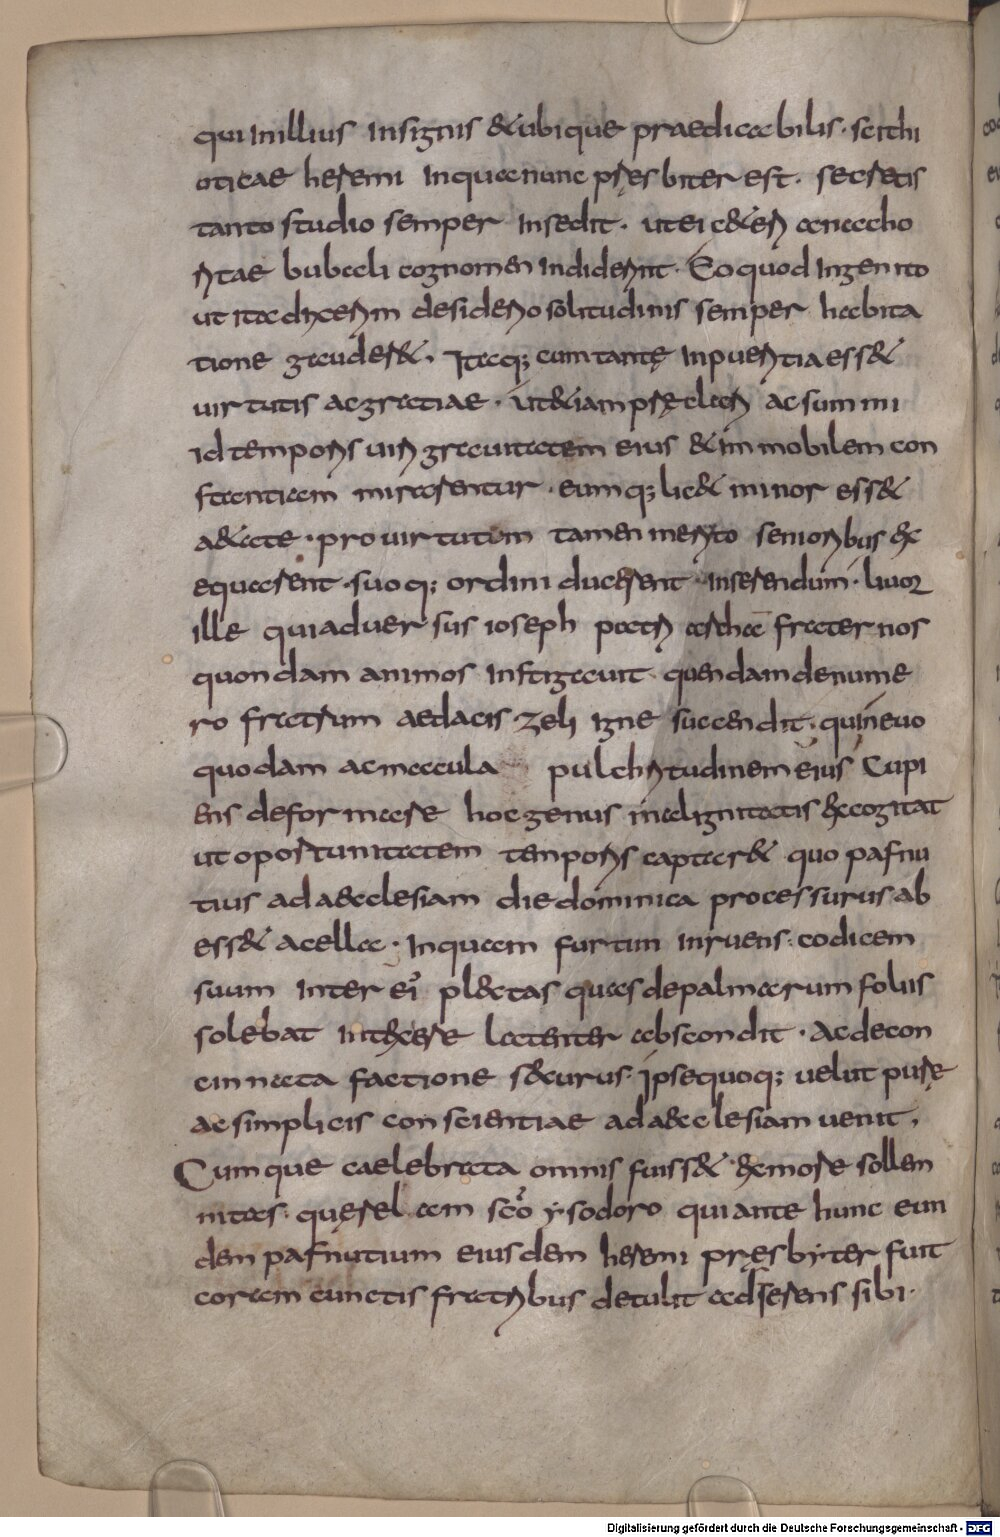 qui in illius insignis & ubique praedicabilis · scithi
oticae heremi in qua nunc presbiter est · secretis
tanto studio semper insedit · ut ei c&eri anacho
ritae bubali cognomen indiderint · Eo quod ingenito
ut ita dixerim desiderio solitudinis semper habita
tione gauder& · Itaq; cum tantę in pueritia ess&
uirtutis ac gratiae · ut &iam pręclari ac summi
id temporis uiri grauitatem eius & immobilem con
stantiam mirarentur · eumq; lic& minor ess&
a&ate · pro uirtutum tamen merito senioribus ex
equarent · suoq; ordini ducerent inserendum · liuor
ille qui aduersus ioseph patriarcha fraternos
quondam animos instigauit quendam de nume
ro fratrum aedacis zeli igne succendit · qui neuo
quodam ac macula pulchritudinem eius Cupi
ens deformare hoc genus malignitatis excogitat
ut oportunitatem temporis captar& quo pafnu
tius ad aecclesiam die dominica processurus ab
ess& a cella · In quam furtim inruens · codicem
suum inter ei' pl&tas quas de palmarum foliis
solebat intexere latenter abscondit · Ac de con
cinnata factione securus · Ipse quoq; uelut purę
ac simplicis conscientiae ad aecclesiam uenit ·
Cumque caelebrata omnis fuiss& ex more sollem
nitas · querelam sc̄o ysodoro qui ante hunc eun
dem pafnutium eiusdem heremi pręsbyter fuit
coram cunctis fratribus detulit adserens sibi ·
Digitalisierung gefördert durch die Deutsche Forschungsgemeinschaft - DFG